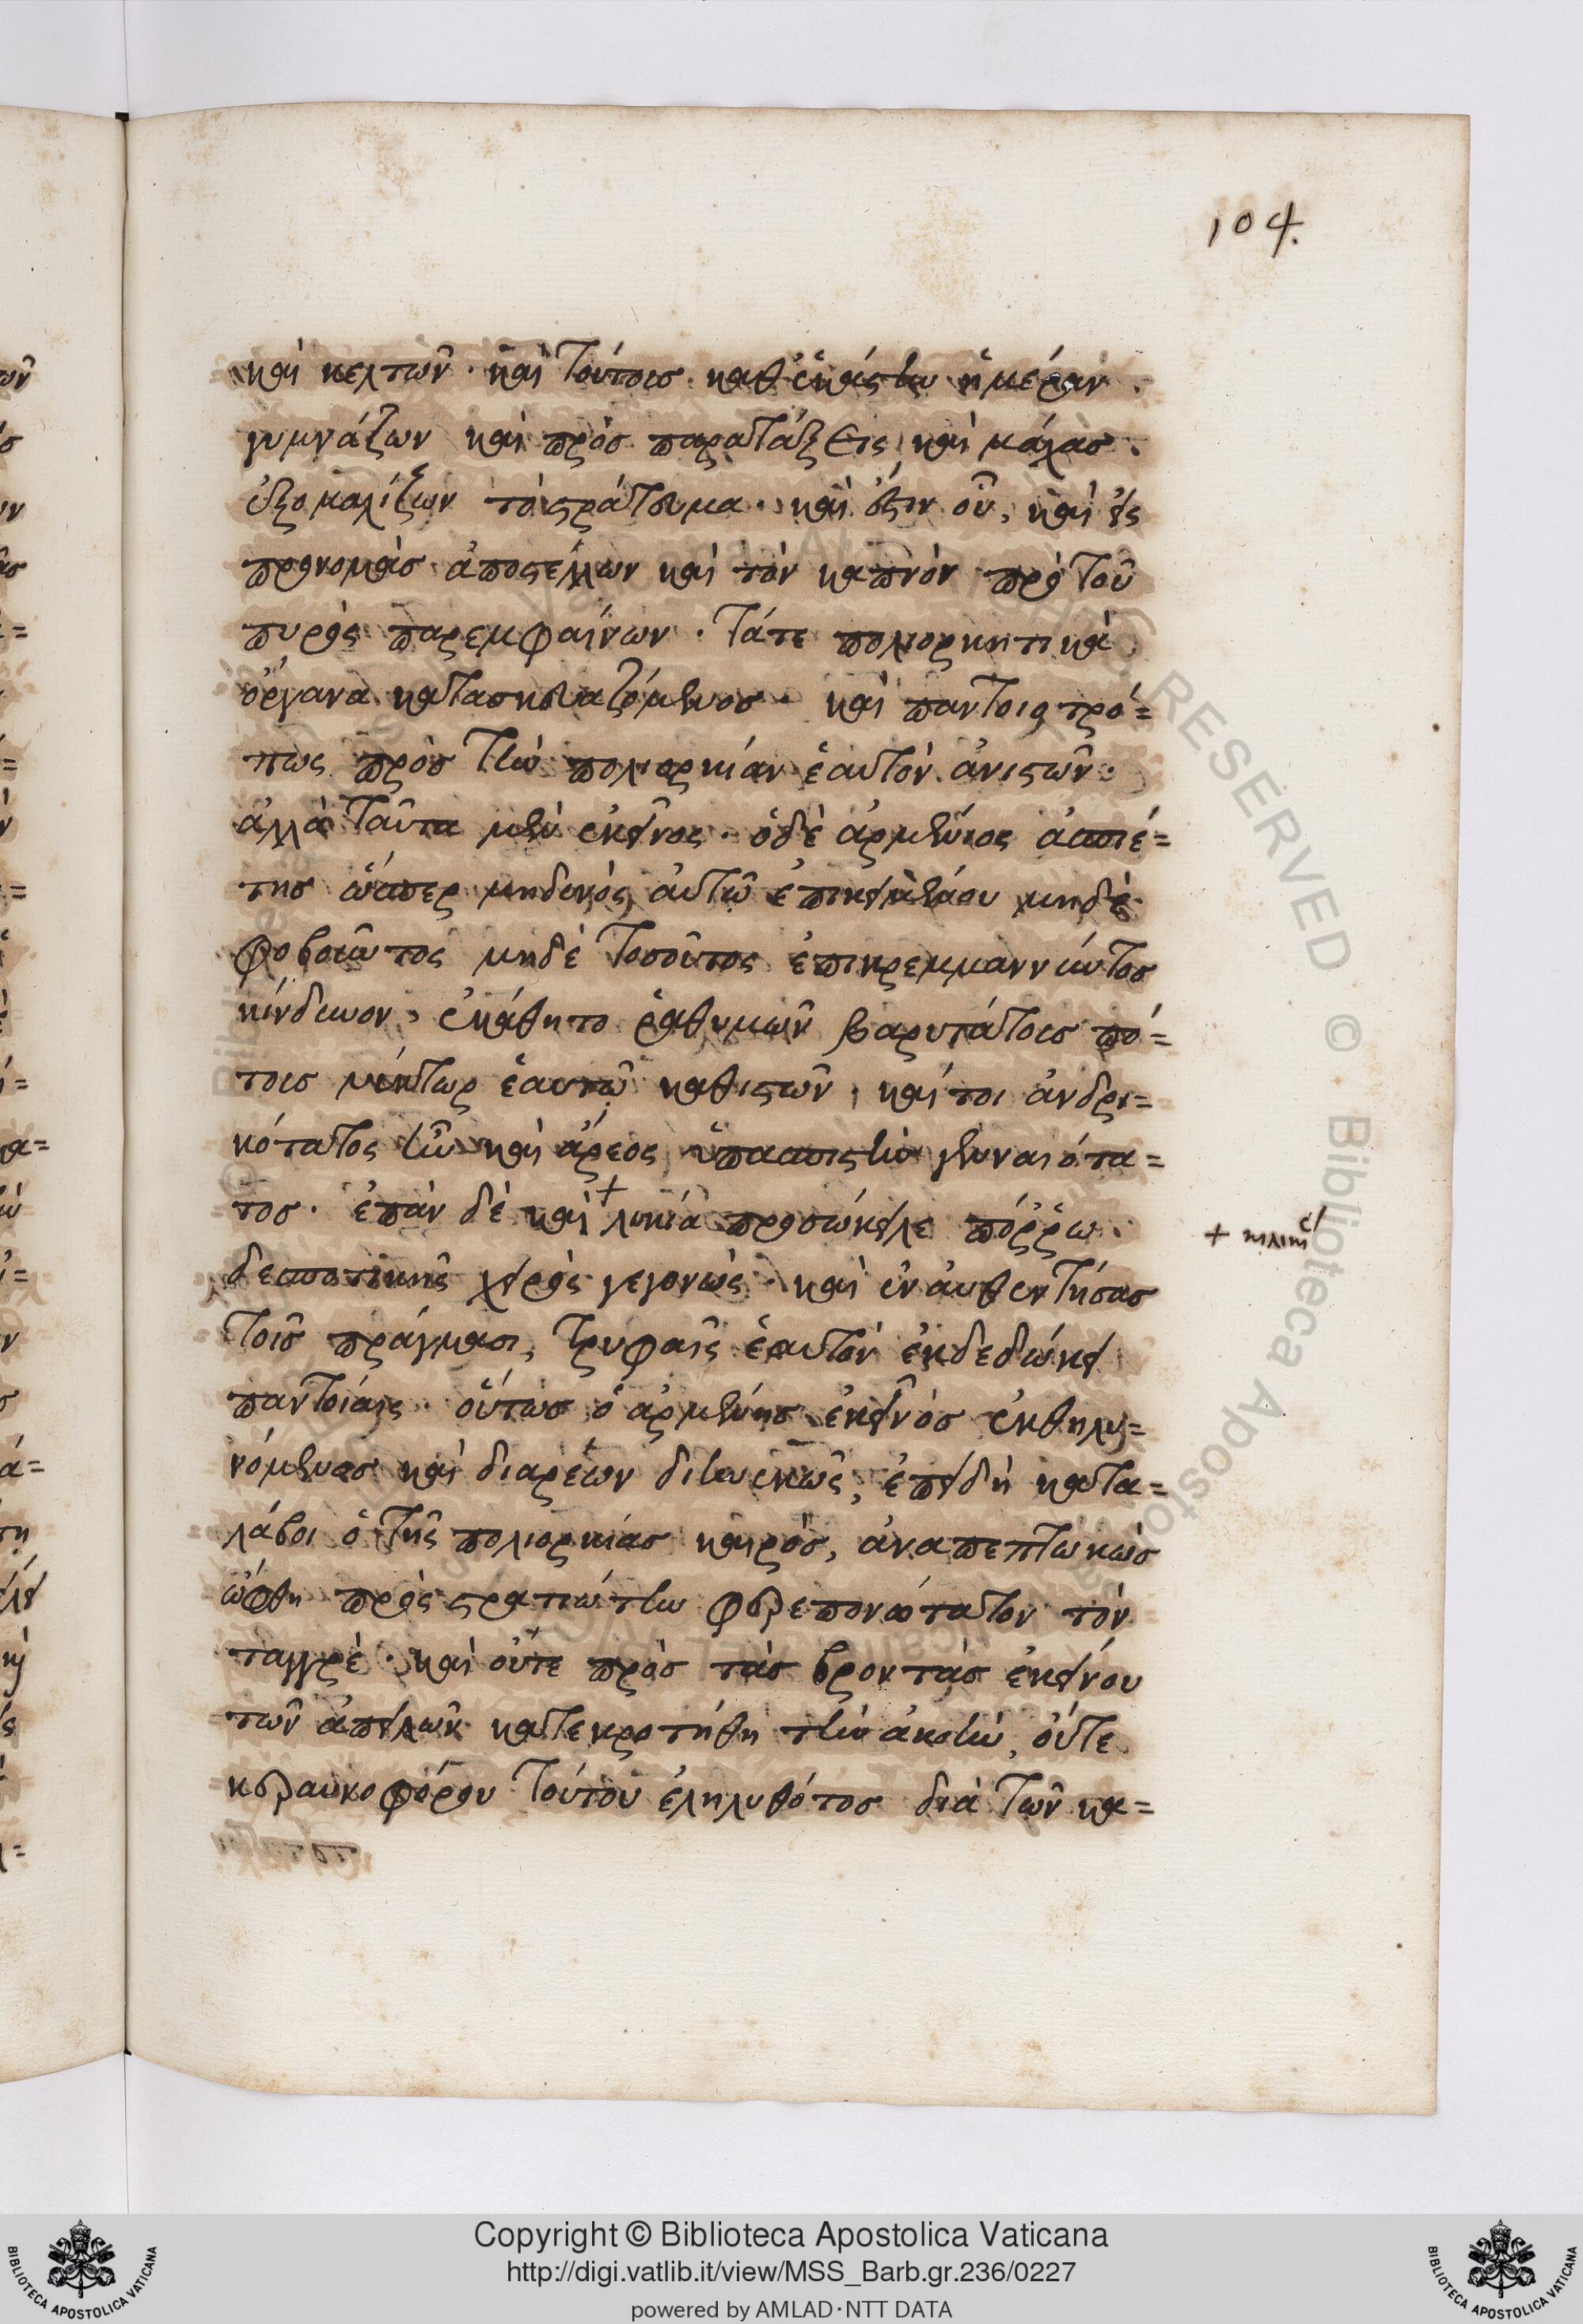 104.
καὶ κελτῶν· καὶ τούτοις καθ' ἑκάστην ἡμέραν.
γυμνάζων καὶ πρὸς παρατάξεις καὶ μάχας.
ἐξομαλίζων τὸ στράτευμα· καὶ ἔστιν οὗ, καὶ εἰς
προνομὰς ἀποστέλλων καὶ τὸν καπνὸν πρὸ τοῦ
πυρὸς παρεμφαίνων· τάτε πολιορκητικὰ
ὄργανα κατασκευαζόμενος· καὶ παντοίοις τρό=
ποις πρὸς τὴν πολιορκίαν ἑαυτὸν ἀνιστῶν·
ἀλλὰ ταῦτα μὲν ἐκεῖνος· ὁδὲ ἀρμένιος ἀσπιέ=
της ὥσπερ μηδενὸς αὐτῷ ἐπικειμένου μηδὲ
φοβοῦντος μηδὲ τοσοῦτος ἐπικρεμμαννύντος
κίνδυνον, ἐκάθητο ῥαθυμῶν βαρυτάτοις πό=
τοις νύκτωρ ἑαυτῷ καθιστῶν, καίτοι ἀνδρι=
κότατος ὢν καὶ ἄρεος ὑπασπιστὴν γενναιότα=
τος· ἐπὰν δὲ καὶ + λυκία προσώκειλε πόῤῥω.
+ κιλικί
δεσποτικῆς χειρὸς γεγονὼς· καὶ ἐναυθεντήσας
τοῖς πράγμασι, τρυφαῖς ἑαυτὸν ἐκδεδώκει
παντοίαις· οὕτως ὁ ἀρμένης ἐκεῖνος ἐκθηλυ=
νόμενος καὶ διαρέων διηνεκῶς, ἐπειδὴ κατα=
λάβοι ὁ τῆς πολιορκίας καιρὸς, ἀναπεπτωκὼς
ὤφθη πρὸς στρατιώτην φερεπονώτατον τὸν
ταγγρὲ· καὶ οὔτε πρὸς τὰς βροντὰς ἐκείνου
τῶν ἀπειλῶν κατεκροτήθη τὴν ἀκοὴν, οὔτε
κεραυνοφόρου τούτου ἐληλυθότος διὰ τῶν κι=
Copyright © Biblioteca Apostolica Vaticana
http://digi.vatlib.it/view/MSS_Barb.gr.236/0227
powered by AMLAD·NTT DATA
BIBLIOTECA APOSTOLICA VATICANA
BIBLIOTECA APOSTOLICA VATICANA